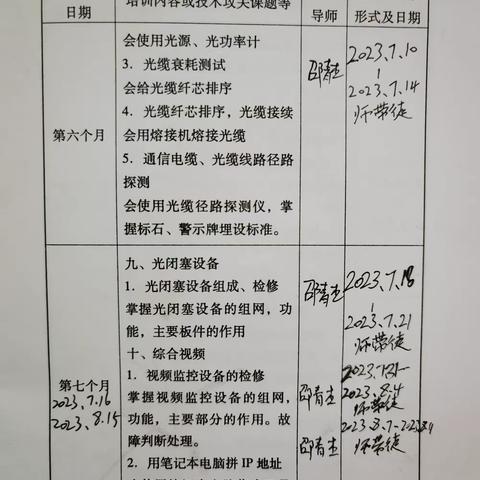 日期
培训内容或技术攻关课题等
导师
形式及日期
第六个月
会使用光源、光功率计
3．光缆衰耗测试
会给光缆纤芯排序
4．光缆纤芯排序，光缆接续
会用熔接机熔接光缆
5．通信电缆、光缆线路径路
探测
会使用光缆径路探测仪，掌
握标石、警示牌埋设标准。
邵青杰
2023、7、10
2023、7、14
师带徒
第七个月
2023、7.16
2023、8.15
九、光闭塞设备
1．光闭塞设备组成、检修
掌握光闭塞设备的组网，功
能，主要板件的作用
十、综合视频
1．视频监控设备的检修
掌握视频监控设备的组网，
功能，主要部分的作用。故
障判断处理。
2．用笔记本电脑拼 IP 地址
邵青杰
邵青杰
邵青杰
2023、7、18
2023、7.21
师带徒
2023、8.4
师带徒
师带徒